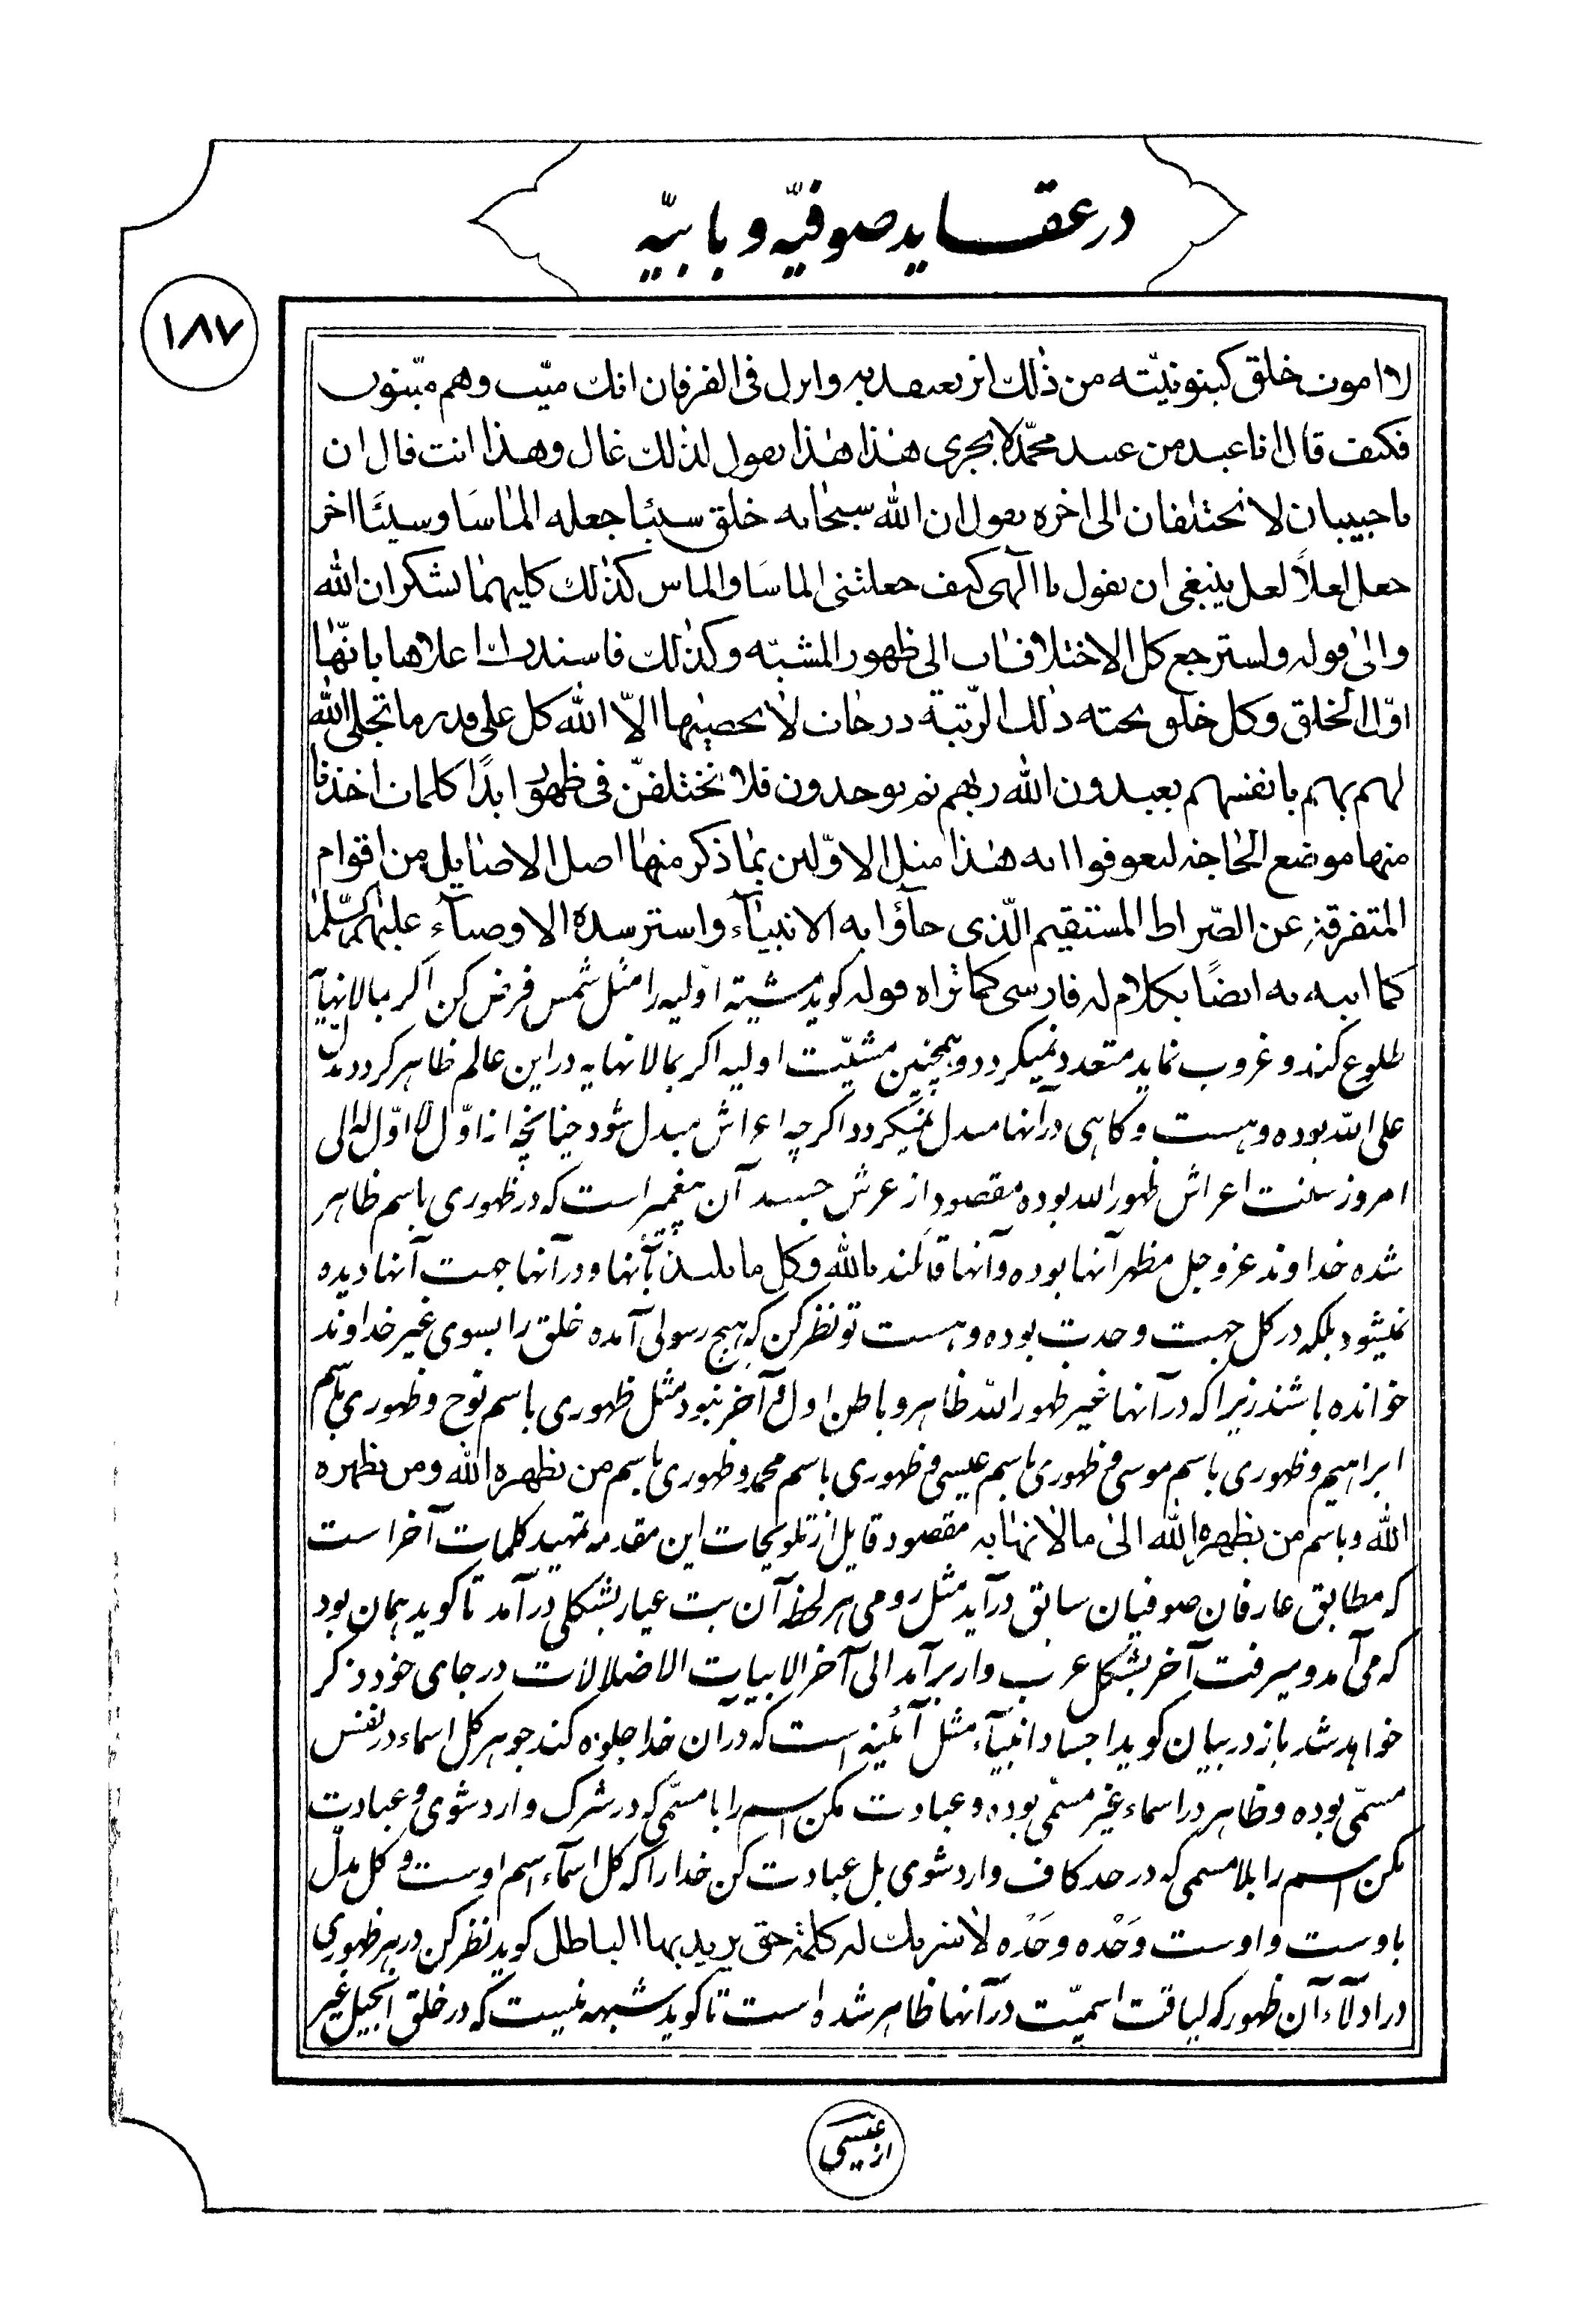 در عقاید صوفیّه و بابیّه
۱۸۷
لا اموت خلق کینونیّته من ذٰلك وانزل فی الفرقان انك میّت وهم میّتون
فکیف قال انا عبد من عبید محمّد لا یجری هٰذا هٰذا یقول لذلك غال وهذا انت قال ان
یا حبیبان لا تختلفان الی اخره یقول ان الله سبحانه خلق شیئا جعله الماسَا وشیئَا اخر
جعل لعلاً لعل ینبغی ان یقول یا الٓهی کیف جعلتنی الماسَا والماس کذٰلك کلیهما یشکران الله
والیٰ قوله ولسترجع کل الاختلافات الی ظهور المشیّه وکذٰلك فاستدرك اعلاها بانّها
اوّل الخلق وکل خلق تحته ذٰلك الرّتبة درجات لا یحصیٰها الاّ الله کل علی قدر ما تجلی الله
لهم بهم بانفسهم یعبدون الله ربهم ثم یوحدون فلا تختلفنّ فی ظهور ابدًا کلمات اخذنا
منها موضع الحاجة هٰذا مثل الاوّلین بما ذکر منها اصل الاضالیل من اقوام
المتفرقة عن الصّراط المستقیم الّذی جآؤا به الانبیآء الاوصیآء علیهم السّلم
کما ایضًا بکلام له فارسی کما تراه قوله کوید مشیته اوّلیه را مثل شمس فرض کن اکر بمالانهایه
طلوع کند و غروب نماید متعدد نمیکردد و همچنین مشیّت اولیه اکر بمالانهایه در این عالم ظاهر کردد یدل
علی الله بوده و هست و کاهی در آنها مبدل نمیکردد اکرچه اعراش مبدل شود چنانچه از اوّل لا اوّل له الی
امروز اعراش ظهور الله بوده مقصود از عرش جسد آن پیغمبر است که در ظهوری باسم ظاهر
شده خداوند عز و جل مظهر آنها بوده و آنها قائمند بالله و کل بآنها و در آنها جهت آنها دیده
نمیشود بلکه در کل جهت وحدت بوده و هست تو نظر کن که هیچ رسولی آمده خلق را بسوی غیر خداوند
خوانده باشند زیرا که در آنها غیر ظهور الله ظاهر و باطن اول و آخر نبود مثل ظهوری باسم نوح و ظهوری باسم
ابراهیم و ظهوری باسم موسی و ظهوری باسم عیسی و ظهوری باسم محمد و ظهوری باسم من یظهره الله ومن یظهره
الله و باسم من یظهره الله الیٰ مالا نهایه مقصود قایل از تلویحات این مقدمه تمهید کلمات آخر است
که مطابق عارفان صوفیان سابق درآید مثل رومی هر لحظه آن بت عیار بشکلی درآمد تا کوید همان بود
که می آمد و میرفت آخر بشکل عرب وار برآمد الی آخر الابیات الاضلالات در جای خود ذکر
خواهد شد باز در بیان کوید اجساد انبیآء مثل آئینه است که در آن خدا جلوه کند جوهر کل اسماء در نفس
مسمّی بوده و ظاهر در اسماء غیر مسمّی بوده و عبادت مکن اسم را با مسمّی که در شرك وارد شوی و عبادت
مکن اسم را بلا مسمی که در حد کاف وارد شوی بل عبادت کن خدا را که کل اسمآء اسم اوست و کل مدلّ
باوست و اوست وَحْده وَحْدَه لا شریك له کلمة حق یرید بها الباطل کوید نظر کن در هر ظهوری
در ادلآء آن ظهور که لیاقت اسمیّت در آنها ظاهر شده است تا کوید شبهه نیست که در خلق انجیل غیر
از عیسی